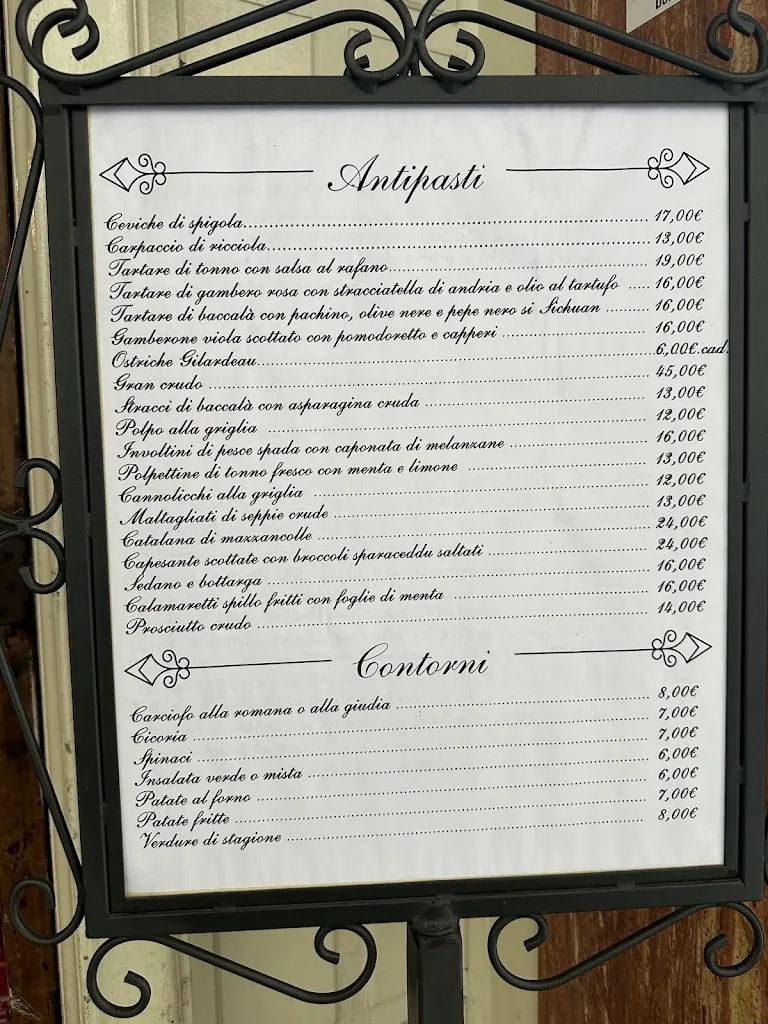 Antipasti
Ceviche di spigola 17,00€
Carpaccio di ricciola 13,00€
Tartare di tonno con salsa al rafano 19,00€
Tartare di gambero rosa con stracciatella di andria e olio al tartufo 16,00€
Tartare di baccalà con pachino, olive nere e pepe nero si Sichuan 16,00€
Gamberone viola scottato con pomodoretto e capperi 16,00€
Ostriche Gilardeau 6,00€.cad.
Gran crudo 45,00€
Stracci di baccalà con asparagina cruda 13,00€
Polpo alla griglia 12,00€
Involtini di pesce spada con caponata di melanzane 16,00€
Polpettine di tonno fresco con menta e limone 13,00€
Cannolicchi alla griglia 12,00€
Maltagliati di seppie crude 13,00€
Catalana di mazzancolle 24,00€
Capesante scottate con broccoli sparaceddu saltati 24,00€
Sedano e bottarga 16,00€
Calamaretti spillo fritti con foglie di menta 16,00€
Prosciutto crudo 14,00€
Contorni
Carciofo alla romana o alla giudia 8,00€
Cicoria 7,00€
Spinaci 7,00€
Insalata verde o mista 6,00€
Patate al forno 6,00€
Patate fritte 7,00€
Verdure di stagione 8,00€